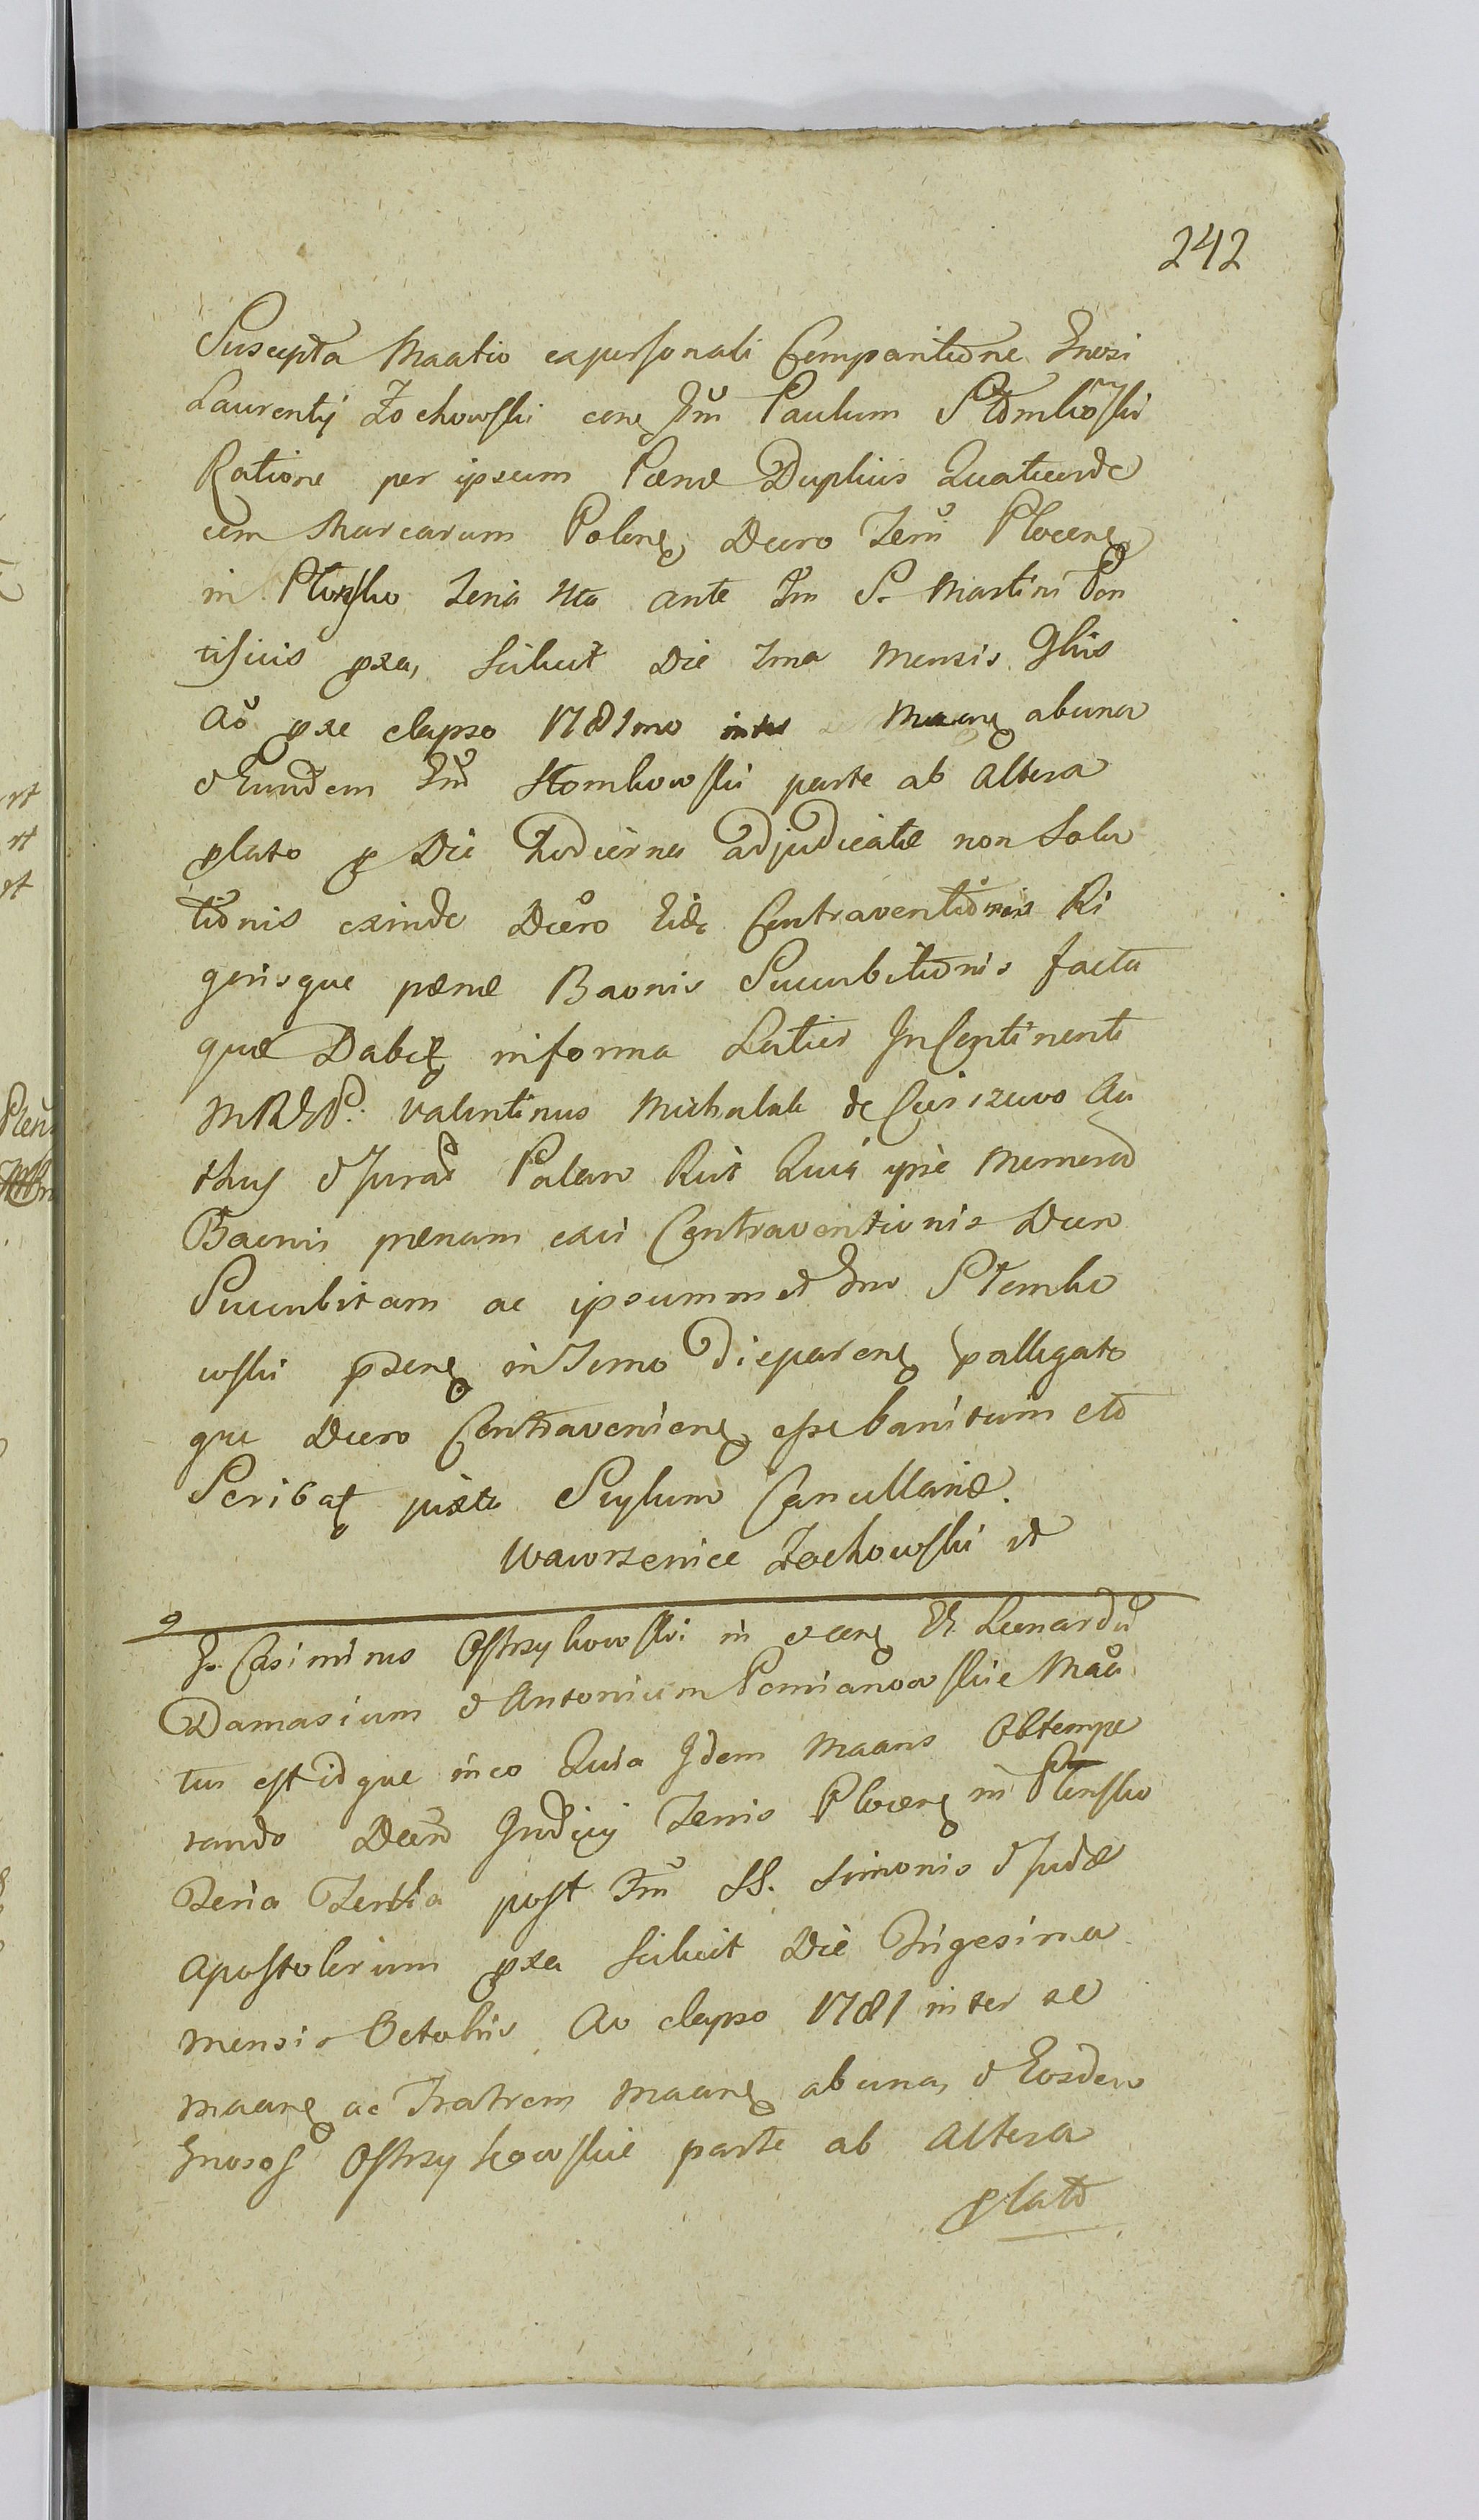 242
Suscepta Maatio ex personali Comparitione Gnosi
Laurentij Zochowski cone Gm Paulum Stomkowski
Ratione per ipsum Pænæ Duplicis Quatuorde
cem Marcarum Polone Decro Terri Plocene
in Plonsko Feria 5ta ante Fm S. Martini Pon
tificis pxa, scilicet Die 1ma Mensis 9bris
Ao pxe elapso 1781mo inter Maane ab una
et Eundem Gm Stomkowski parte ab altera
plato p Die hodierna adjudicatæ non Solu
tionis exinde Decro Eidc Contraventionis Ri
gorisque pænæ Baonis Succubitionis facta
quæ Dabit in forma Latiori In Continenti
MRGP. Valentinus Michalak de Au
thus et Jurat Palam Rit Quia ipse Memorat
Baonis pænam exci Contraventionis Decro
Succubitam ac ipsummet Gm Stomko
wski psene in Termo Dieparene pallegato
que Decro Contraveniene esse banitum etc
Scribat juxta Stylum Cancellariæ.
Wawrzeniec Zochowski et
9
G. Casimirus Ostrzykowski in et cone GG Leonardu
Damasium et Antonium Pomianowskie Maa
tus est idque in eo Quia Idem Maans Obtempe
rando Decro Judicij Terris Plocene in Plonsko
Feria Tertia post Fm SS. Simonis et Judæ
Apostolorum pxa scilicet Die Trigesima
mensis Octobris Ao elapso 1781 inter se
maane ac Fratrem Maane ab una, et Eosdem
Gnosos Ostrzykowskie parte ab Altera
plato